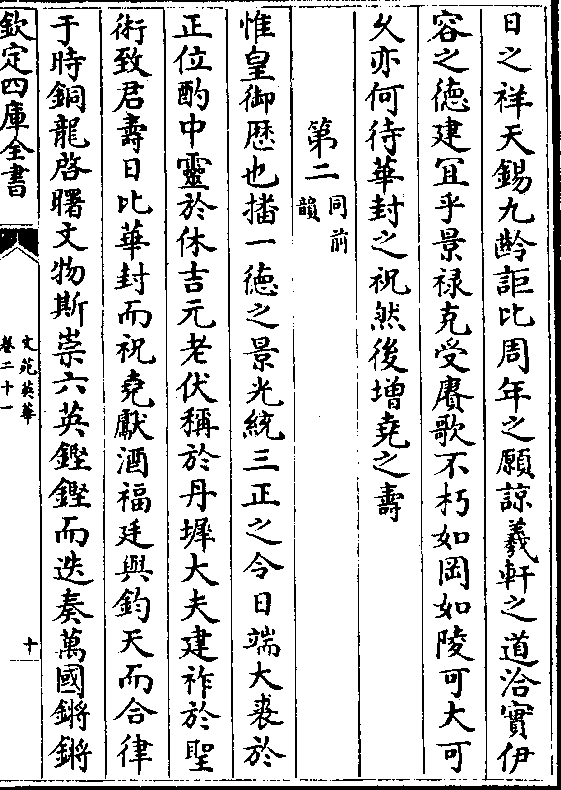 日之祥天錫九齡詎比周年之願諒羲軒之道洽實伊
容之德建宜乎景祿克受賡歌不朽如岡如陵可大可
久亦何待華封之祝然後增堯之壽
第二同前韻
惟皇御歴也播一德之景光統三正之令日端大裘於
正位酌中靈於休吉元老伏稱於丹墀大夫建祚於聖
術致君壽日比華封而祝堯獻酒福廷與鈞天而合律
于時銅龍啓曙文物斯崇六英鏗鏗而迭奏萬國鏘鏘
欽定四庫全書
文苑英華
卷二十一
十